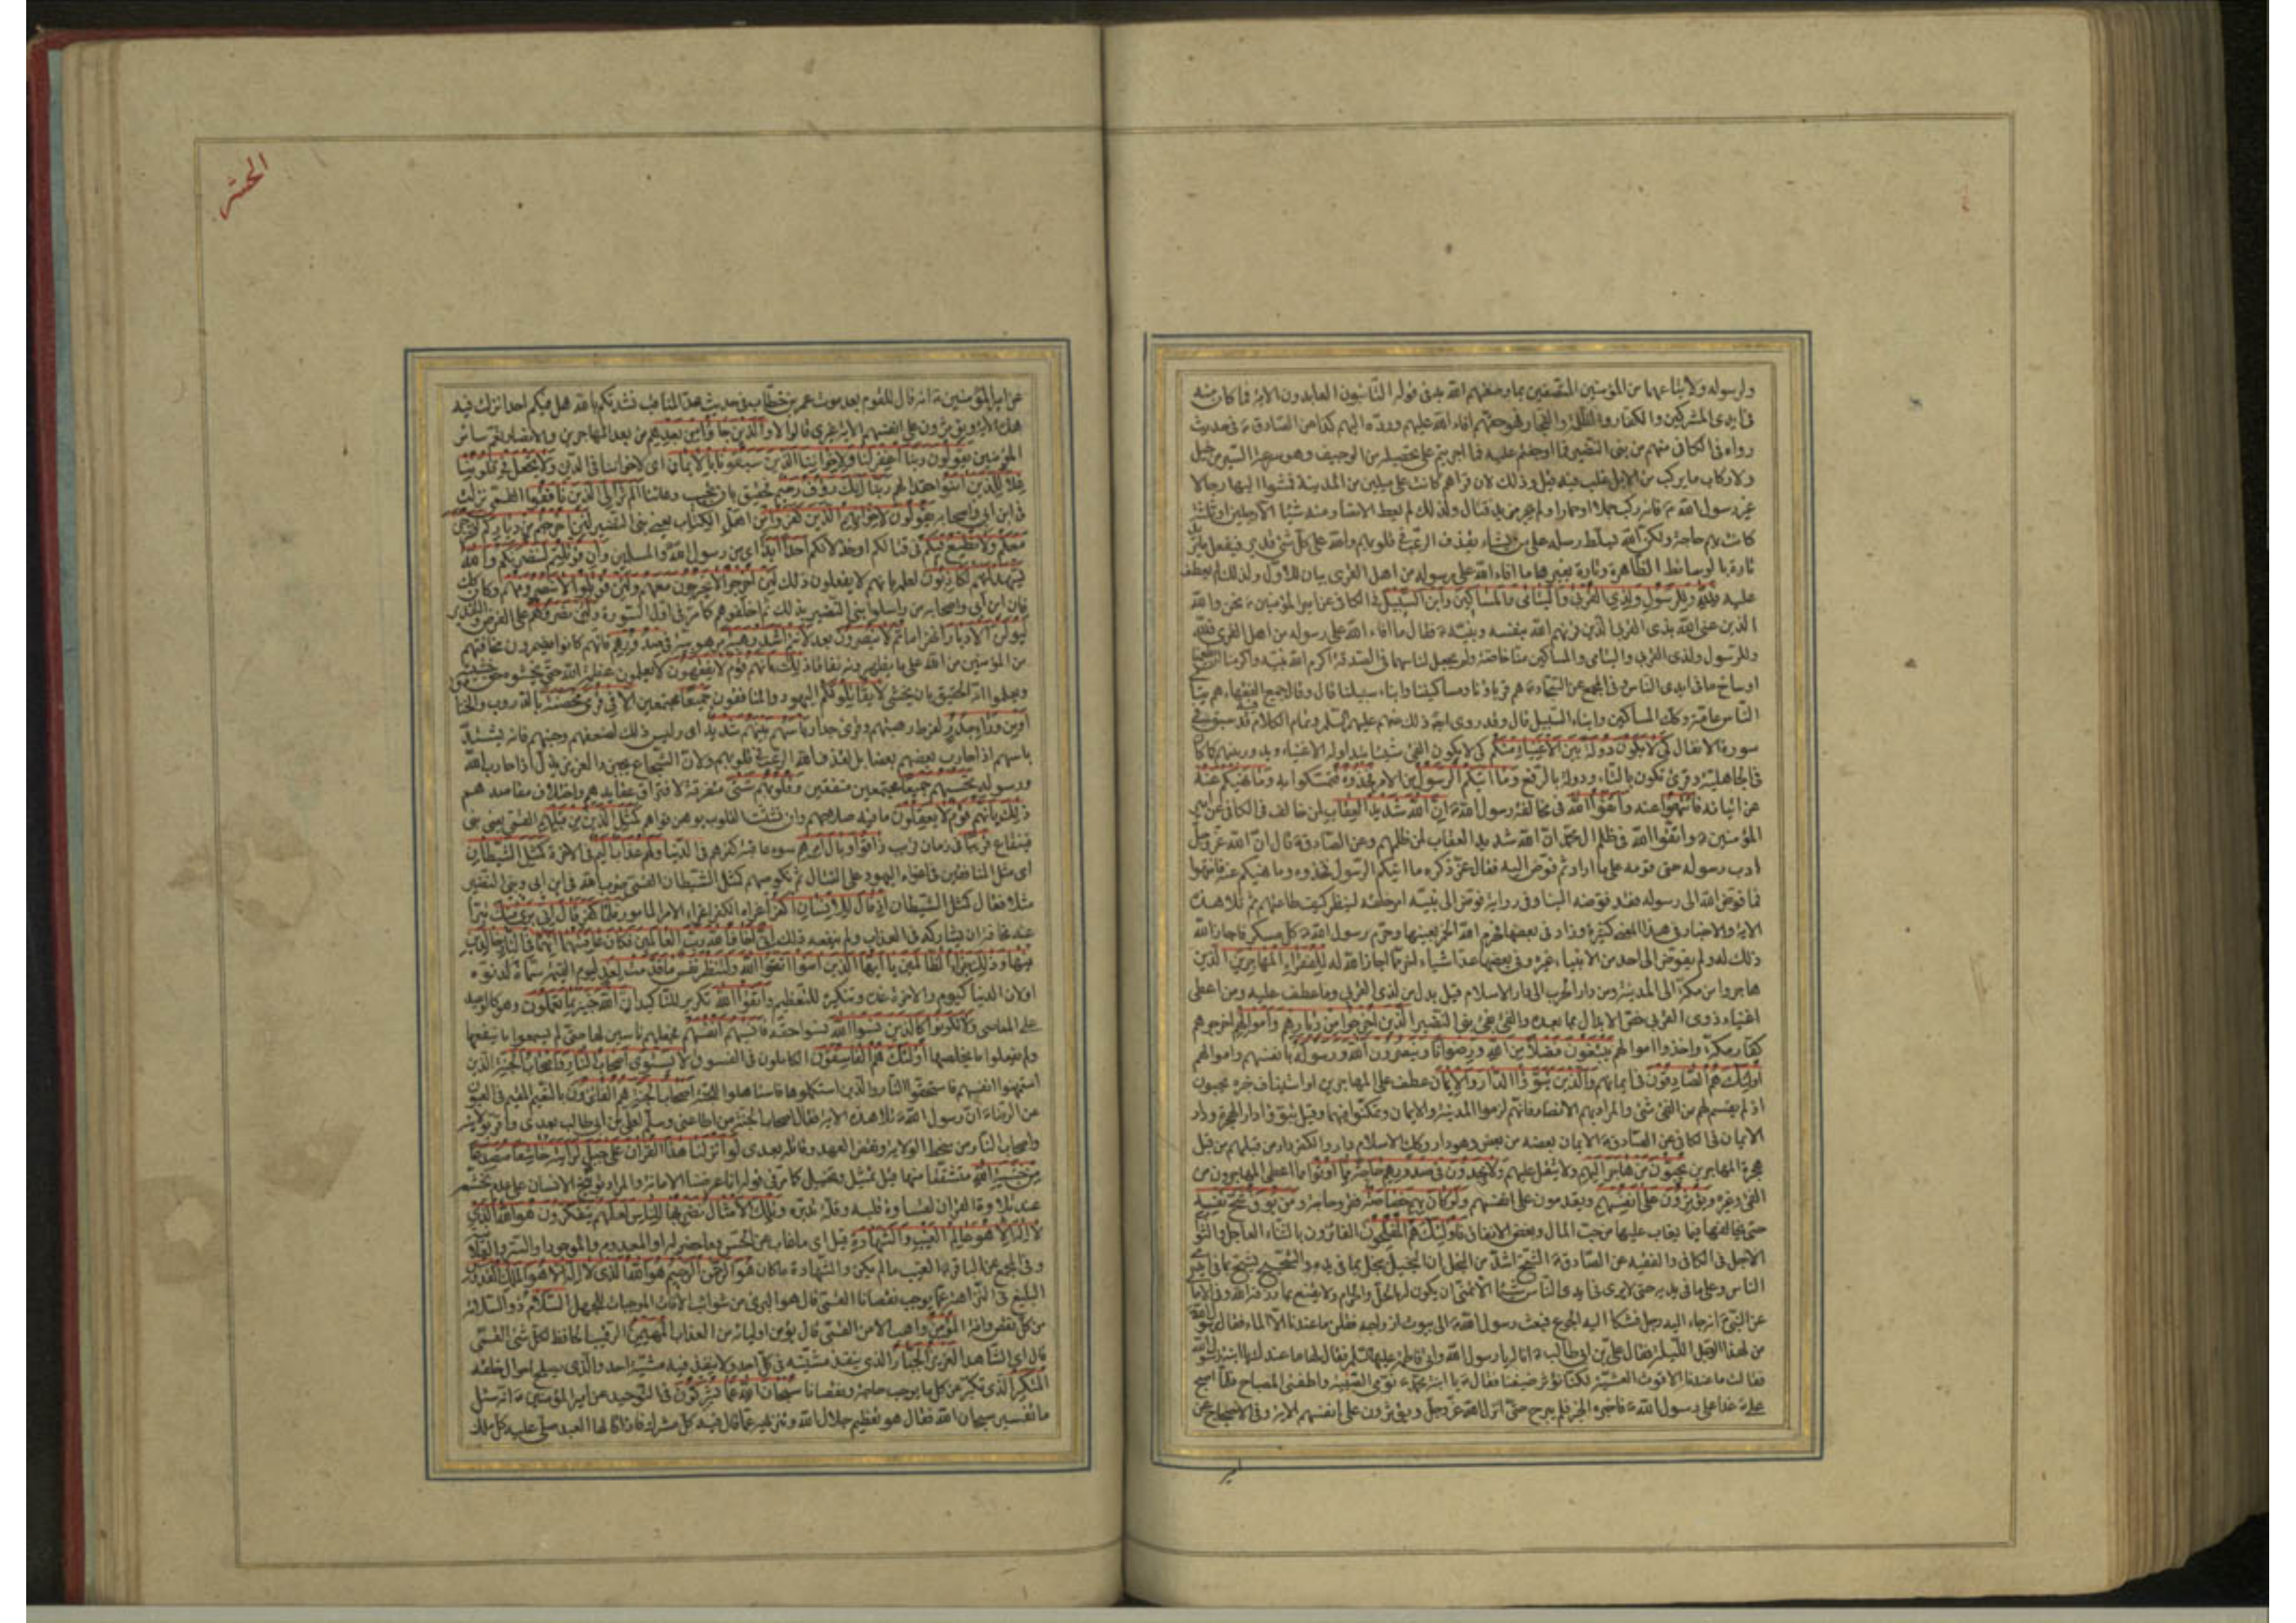 ولرسوله ولاتباعهما من المؤمنين المتصفين بما وصفهم الله به في قوله التائبون العابدون الآية فما كان منه
في ايدي المشركين والكفار والظلمة والفجار فهو حقهم افاء الله عليهم وردّه اليهم كذا عن الصادق ع في حديث
رواه في الكافي منهم من بني النضير فما اوجفتم عليه فما اجريتم على تحصيله من الوجيف وهو سرعة السير من خيل
ولا ركاب ما يركب من الابل غلب فيه قيل وذلك لان قراهم كانت على ميلين من المدينة فمشوا اليها رجالا
غير رسول الله ص فانه ركب جملا او حمارا ولم يجر مزيد قتال ولذلك لم يعط الانصار منه شيئا الا رجلين او ثلثة
كانت بهم حاجة ولكن الله يسلط رسله على من يشاء بقذف الرعب في قلوبهم والله على كل شئ قدير فيفعل ما يريد
تارة بالوسائط الظاهرة وتارة بغيرها ما افاء الله على رسوله من اهل القرى بيان للاول ولذلك لم يعطف
عليه فلله وللرسول ولذي القربى واليتامى والمساكين وابن السبيل في الكافي عن امير المؤمنين ع نحن والله
الذين عنى الله بذي القربى الذين قرنهم الله بنفسه ونبيه ص فقال ما افاء الله على رسوله من اهل القرى فلله
وللرسول ولذي القربى واليتامى والمساكين منا خاصة ولم يجعل لنا سهما في الصدقة اكرم الله نبيه واكرمنا ان يطعمنا
اوساخ ما في ايدي الناس وفي المجمع عن السجاد ع هم قربانا ومساكيننا وابناء سبيلنا قال وقال جميع الفقهاء هم يتامى
الناس عامة وكذلك المساكين وابناء السبيل قال وقد روي ايضا ذلك عنهم عليهم السلم وتمام الكلام فيه قد سبق في
سورة الانفال كي لا يكون دولة بين الاغنياء منكم كي لا يكون الفئ شيئا يتداوله الاغنياء ويدور بينهم كما كان
في الجاهلية وقرئ تكون بالتاء ودولة بالرفع وما آتيكم الرسول من الامر فخذوه فتمسكوا به وما نهيكم عنه
عن اتيانه فانتهوا عنه واتقوا الله في مخالفة رسول الله ص ان الله شديد العقاب لمن خالف في الكافي عن امير
المؤمنين ع واتقوا الله في ظلم آل محمد ان الله شديد العقاب لمن ظلمهم وعن الصادق ع قال ان الله عز وجل
ادب رسوله حتى قومه على ما اراد ثم فوض اليه فقال عز ذكره ما آتيكم الرسول فخذوه وما نهيكم عنه فانتهوا
فما فوض الله الى رسوله فقد فوضه الينا وفي رواية فوض الى نبيه امر خلقه لينظر كيف طاعتهم ثم تلا هذه
الآية والاخبار في هذا المعنى كثيرة وزاد في بعضها فحرم الله الخمر بعينها وحرم رسول الله ص كل مسكر فاجاز الله
ذلك له ولم يفوض الى احد من الانبياء غيره وفي بعضها عد اشياء اخر مما اجاز الله له للفقراء المهاجرين الذين
هاجروا من مكة الى المدينة ومن دار الحرب الى دار الاسلام قيل بدل من لذي القربى وما عطف عليه ومن اعطى
اغنياء ذوي القربى خص الابدال بما بعده والفئ بفئ بني النضير الذين اخرجوا من ديارهم واموالهم اخرجهم
كفار مكة واخذوا اموالهم يبتغون فضلا من الله ورضوانا وينصرون الله ورسوله بانفسهم واموالهم
اولئك هم الصادقون في ايمانهم والذين تبوؤا الدار والايمان عطف على المهاجرين او استيناف خبره يحبون
اذ لم يقسم لهم من الفئ شئ والمراد بهم الانصار فانهم لزموا المدينة والايمان وتمكنوا فيهما وقيل تبوؤا دار الهجرة ودار
الايمان في الكافي عن الصادق ع الايمان بعضه من بعض وهو دار وكذلك الاسلام دار والكفر دار من قبلهم من قبل
هجرة المهاجرين يحبون من هاجر اليهم ولا يثقل عليهم ولا يجدون في صدورهم حاجة مما اوتوا مما اعطى المهاجرون من
الفئ وغيره ويؤثرون على انفسهم ويقدمون على انفسهم ولو كان بهم خصاصة فقر وحاجة ومن يوق شح نفسه
حتى يخالفها فيما يغلب عليها من حب المال وبغض الانفاق فاولئك هم المفلحون الفائزون بالثناء العاجل والثواب
الآجل في الكافي والفقيه عن الصادق ع الشح اشد من البخل ان البخيل يبخل بما في يده والشحيح يشح بما في ايدي
الناس وعلى ما في يديه حتى لا يرى في ايدي الناس شيئا الا تمنى ان يكون له بالحل والحرام ولا يقنع بما رزقه الله وفي الامالي
عن النبي ص انه جاء اليه رجل فشكا اليه الجوع فبعث رسول الله ص الى بيوت ازواجه فقلن ما عندنا الا الماء فقال رسول الله
من لهذا الرجل الليلة فقال علي بن ابي طالب ع انا له يا رسول الله واتى فاطمة عليها السلم فقال لها ما عندك يا ابنة رسول الله
فقالت ما عندنا الا قوت العشية لكنا نؤثر ضيفنا فقال ع يا ابنة محمد ص نومي الصبية واطفئي المصباح فلما اصبح
علي ع غدا على رسول الله ص فاخبره الخبر فلم يبرح حتى انزل الله عز وجل ويؤثرون على انفسهم الآية وفي الاحتجاج عن
امير
الحشر
عن امير المؤمنين ع انه قال للقوم بعد موت عمر بن خطاب في حديث هذا المناقب نشدتكم بالله هل فيكم احد انزلت فيه
هذه الآية ويؤثرون على انفسهم الآية غيري قالوا لا والذين جاؤا من بعدهم من بعد المهاجرين والانصار يعم سائر
المؤمنين يقولون ربنا اغفر لنا ولاخواننا الذين سبقونا بالايمان اي لاخواننا في الدين ولا تجعل في قلوبنا
غلا للذين آمنوا حقدا لهم ربنا انك رؤف رحيم فحقيق بان تجيب دعائنا الم تر الى الذين نافقوا القمي نزلت
في ابن ابي واصحابه يقولون لاخوانهم الذين كفروا من اهل الكتاب يعني بني النضير لئن اخرجتم من دياركم لنخرجن
معكم ولا نطيع فيكم في قتالكم او خذلانكم احدا ابدا اي من رسول الله والمسلمين وان قوتلتم لننصرنكم والله
يشهد انهم لكاذبون لعلمه بانهم لا يفعلون ذلك لئن اخرجوا لا يخرجون معهم ولئن قوتلوا لا ينصرونهم وكان كذلك
فان ابن ابي واصحابه راسلوا بني النضير بذلك ثم اخلفوهم كما مر في اول السورة ولئن نصروهم على الفرض والتقدير
ليولن الادبار انهزاما ثم لا ينصرون بعد لانتم اشد رهبة مرهوبية في صدورهم فانهم كانوا يضمرون مخافتهم
من المؤمنين من الله على ما يظهرونه نفاقا ذلك بانهم قوم لا يفقهون لا يعلمون عظمة الله حتى يخشوه حق خشيته
ويعلموا انه الحقيق بان يخشى لا يقاتلونكم اليهود والمنافقون جميعا مجتمعين الا في قرى محصنة بالدروب والخنادق
او من وراء جدر لفرط رهبتهم وقرئ جدار باسهم بينهم شديد اي وليس ذلك لضعفهم وجبنهم فانه يشتد
باسهم اذا حارب بعضهم بعضا بل لقذف الله الرعب في قلوبهم ولان الشجاع يجبن والعزيز يذل اذا حارب الله
ورسوله تحسبهم جميعا مجتمعين متفقين وقلوبهم شتى متفرقة لافتراق عقايدهم واختلاف مقاصدهم
ذلك بانهم قوم لا يعقلون ما فيه صلاحهم وان تشتت القلوب يوهن قواهم كمثل الذين من قبلهم القمي يعني بني
قينقاع قريبا في زمان قريب ذاقوا وبال امرهم سوء عاقبة كفرهم في الدنيا ولهم عذاب اليم في الآخرة كمثل الشيطان
اي مثل المنافقين في اغراء اليهود على القتال ثم نكوصهم كمثل الشيطان القمي ضرب الله في ابن ابي وبني النضير
مثلا فقال كمثل الشيطان اذ قال للانسان اكفر اغراه الكفر اغراء الآمر المامور فلما كفر قال اني برئ منك تبرأ
عنه مخافة ان يشاركه في العذاب ولم ينفعه ذلك اني اخاف الله رب العالمين فكان عاقبتهما انهما في النار خالدين
فيها وذلك جزاء الظالمين يا ايها الذين آمنوا اتقوا الله ولتنظر نفس ما قدمت لغد ليوم القيمة سماه لدنوه
او لان الدنيا كيوم والآخرة غده وتنكيره للتعظيم واتقوا الله تكرير للتاكيد ان الله خبير بما تعملون وهو كالوعيد
على المعاصي ولا تكونوا كالذين نسوا الله نسوا حقه فانسيهم انفسهم فجعلهم ناسين لها حتى لم يسمعوا ما ينفعها
ولم يفعلوا ما يخلصها اولئك هم الفاسقون الكاملون في الفسوق لا يستوي اصحاب النار واصحاب الجنة الذين
استهنوا انفسهم فاستحقوا النار والذين استكملوها فاستاهلوا للجنة اصحاب الجنة هم الفائزون بالنعيم المقيم في العيون
عن الرضا ع ان رسول الله ص تلا هذه الآية فقال اصحاب الجنة من اطاعني وسلم لعلي بن ابي طالب بعدي واقر بولايته
واصحاب النار من سخط الولاية ونقض العهد وقاتله بعدي لو انزلنا هذا القرآن على جبل لرايته خاشعا متصدعا
من خشية الله متشققا منها قيل تمثيل وتخييل كما مر في قوله انا عرضنا الامانة والمراد توبيخ الانسان على عدم تخشعه
عند تلاوة القرآن لقساوة قلبه وقلة تدبره وتلك الامثال نضربها للناس لعلهم يتفكرون هو الله الذي
لا اله الا هو عالم الغيب والشهادة قيل اي ما غاب عن الحس وما حضر له او المعدوم والموجود او السر والعلانية
وفي المجمع عن الباقر ع الغيب ما لم يكن والشهادة ما كان هو الرحمن الرحيم هو الله الذي لا اله الا هو الملك القدوس
البليغ في النزاهة عما يوجب نقصانا القمي قال هو البرئ من شوائب الآفات الموجبات للجهل السلام ذو السلامة
من كل نقص وآفة المؤمن واهب الامن القمي قال يؤمن اوليائه من العذاب المهيمن الرقيب الحافظ لكل شئ القمي
قال اي الشاهد العزيز الجبار الذي ينفذ مشيته في كل احد ولا ينفذ فيه مشية احد والذي يصلح احوال خلقه
المتكبر الذي تكبر عن كل ما يوجب حاجة ونقصانا سبحان الله عما يشركون في التوحيد عن امير المؤمنين ع انه سئل
ما تفسير سبحان الله فقال هو تعظيم جلال الله وتنزيهه عما قال فيه كل مشرك فاذا قالها العبد صلى عليه كل ملك